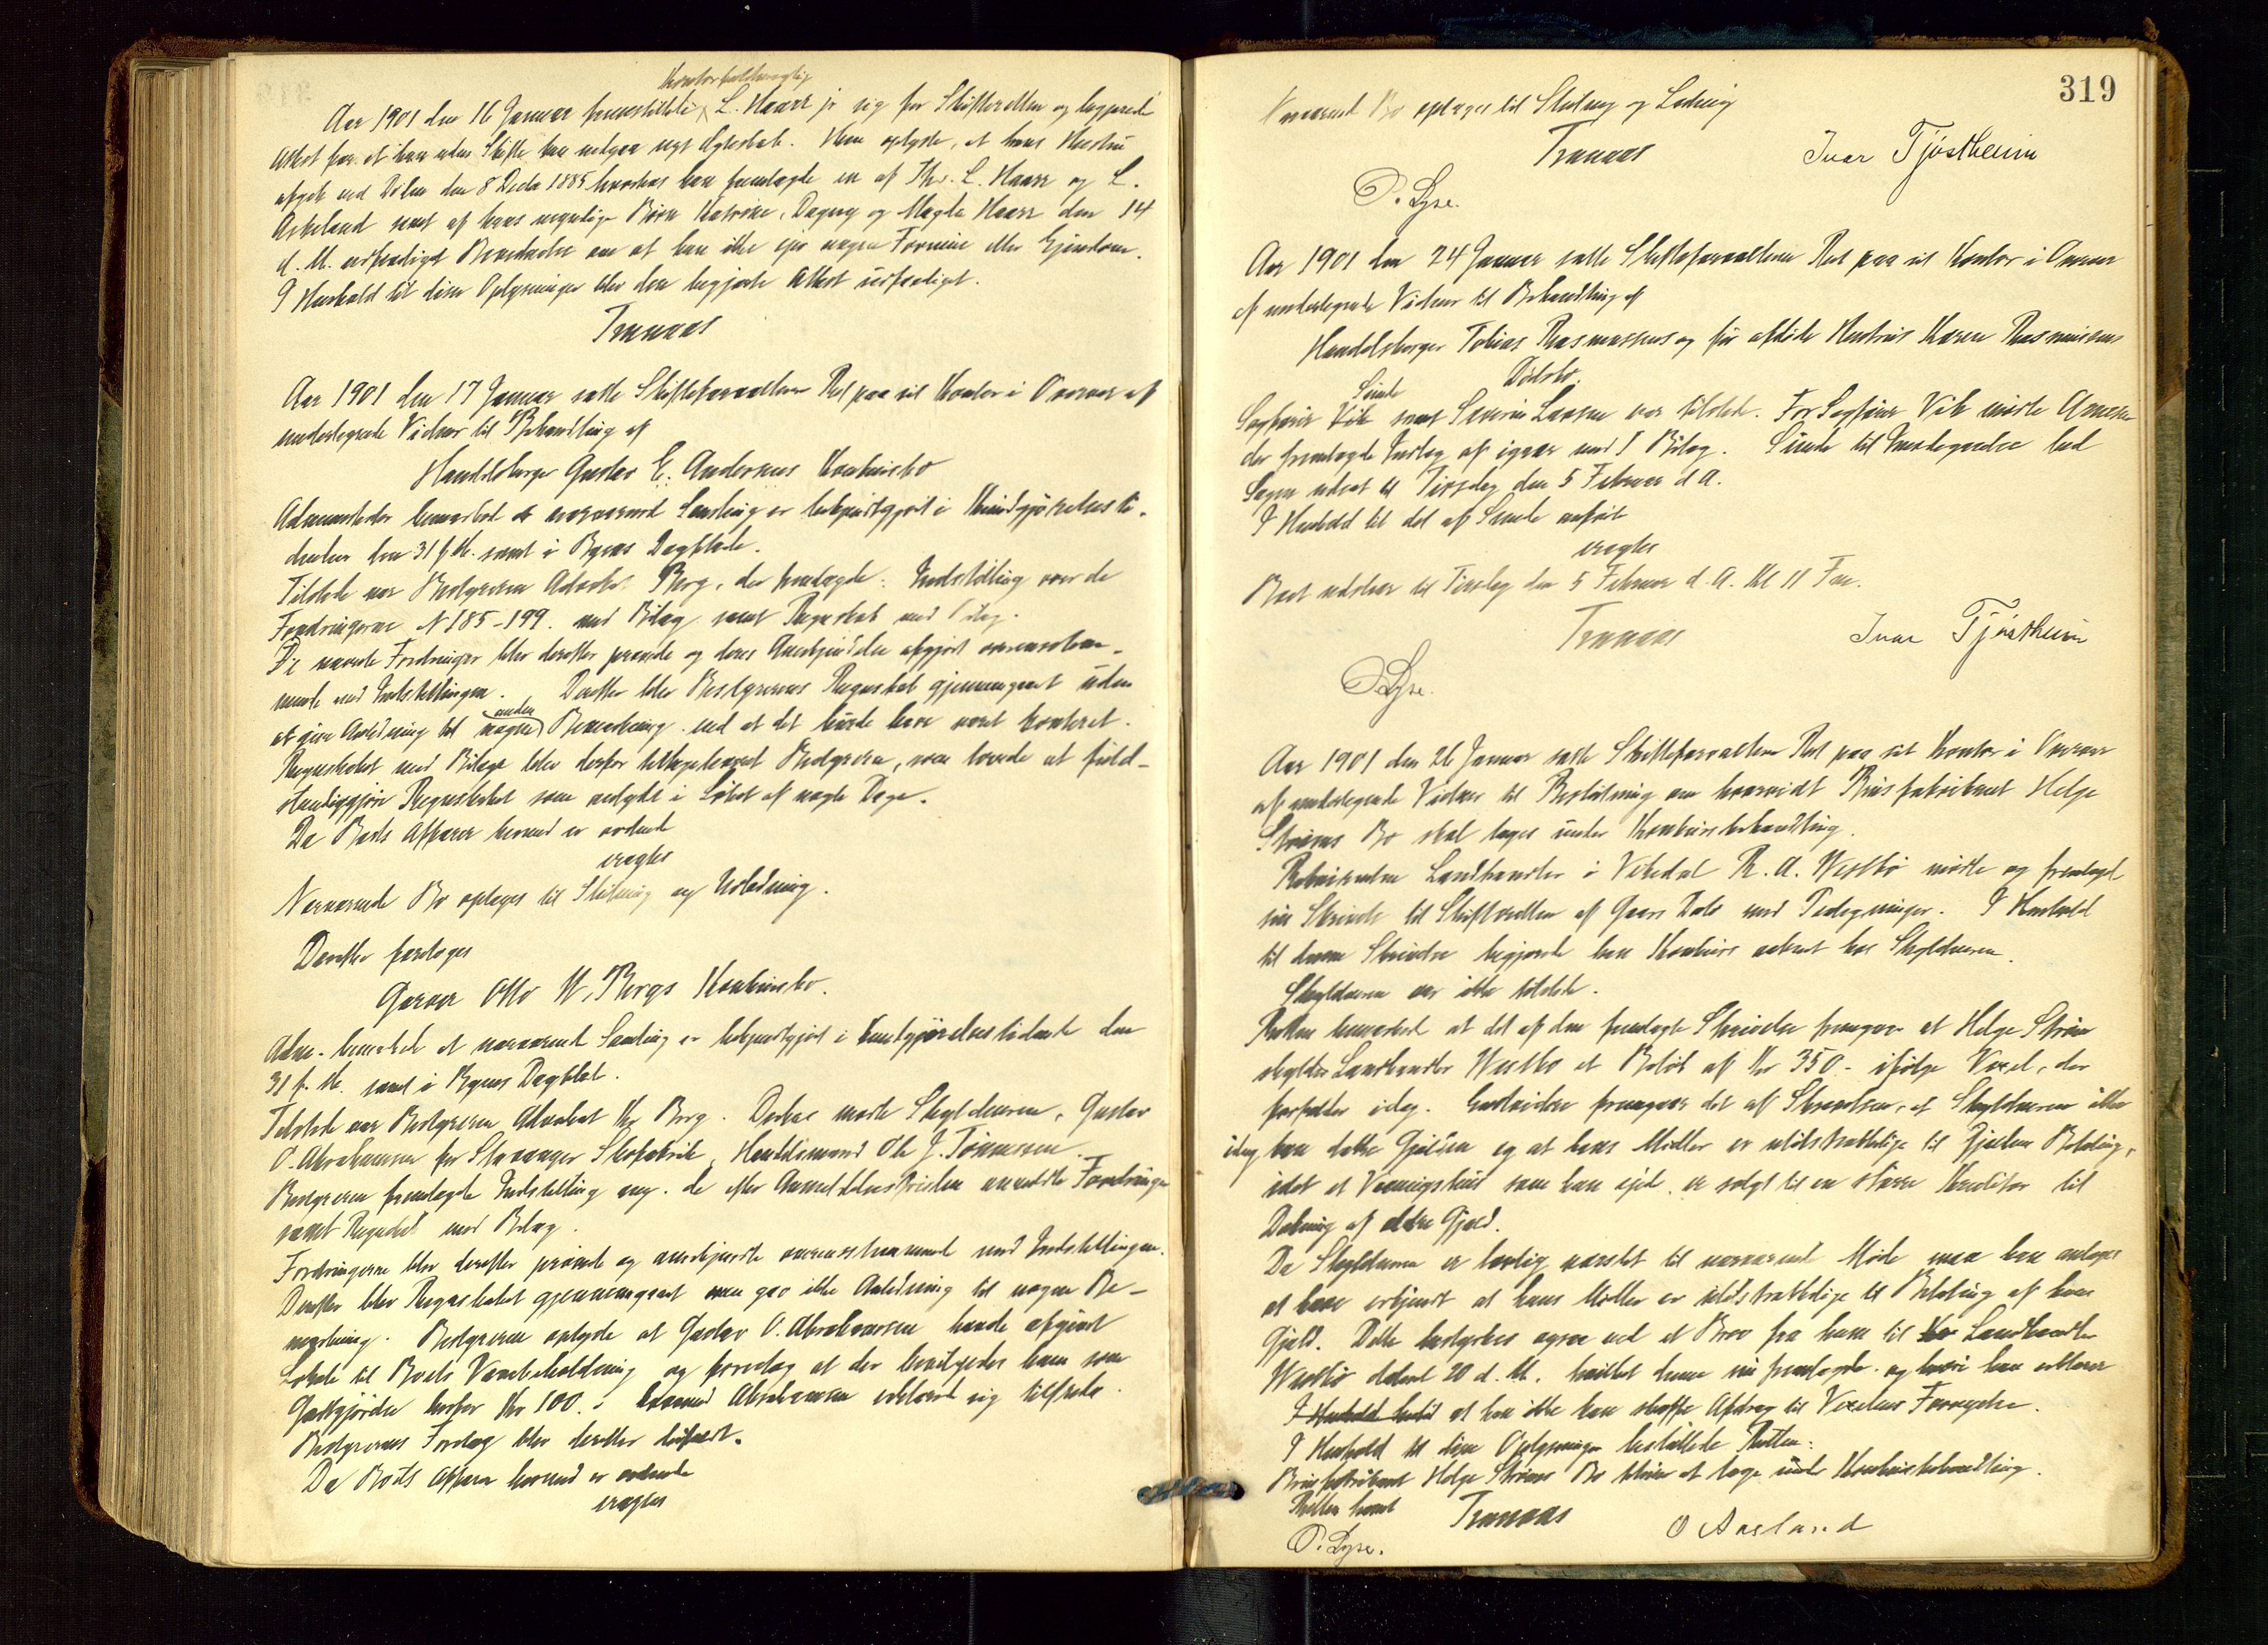 Kontorfuldmægtig
Aar 1901 den 16 Januar fremstillede L. Haarr jr sig for Skifteretten og begjærede
Attest for at han uden Skifte kan indgaa nyt Ægteskab. Han oplyste, at hans Hustru
afgik ved Døden den 8 Decbr 1885 hvorhos han fremlagde en af Ths. L. Haarr og L.
Askeland samt af hans myndige Børn Katrine, Dagny og Magda Haarr den 14
d. M. udfærdiget Bevidnelse om at han ikke ejer nogen Formue eller Ejendom.
I Henhold til disse Oplysninger blev den begjærte Attest udfærdiget.
Tranaas
Aar 1901 den 17 Januar satte Skifteforvalteren Ret paa sit Kontor i Overvær af
undertegnede Vidner til Behandling af
Handelsborger Gustav E. Andersens Konkursbo
Administrator bemærket at nærværende Samling er bekjendtgjort i Kundgjørelsesti-
dende den 31 f. M. samt i Byens Dagblade.
Tilstede var Bestyreren Advokat Berg, der fremlagde: Indstilling over de
Fordringerne N 185-199. med Bilag samt Regnskab med Bilag.
De nævnte Fordringer blev derefter prøvede og deres Anerkjendelse afgjort overensstem-
mende med Indstillingen. Derefter blev Bestyrerens Regnskab gjennemgaaet uden
anden
at give Anledning til nogen Bemærkning end at det burde have været konteret.
Regnskabet med Bilage blev derfor tilbageleveret Bestyreren, som lovede at fuld-
stændiggjøre Regnskabet som nedgdt i Løbet af nogle Dage.
Da Boets Affærer hermed er ordnede
eragtes
Nærværende Bo optages til Slutning og Udlodning.
Derefter foretoges
Garver Otto W. Bergs Konkursbo.
Adm. bemærkede at nærværende Samling er bekjendtgjort i Kundgjørelsestidende den
31 f. M. samt i Byens Dagblad.
Tilstede var Bestyreren Advokat Chr Berg. Desuden mødte Skyldneren, Gustav
O. Abrahamsen for Stavanger Skofabrik, Handelsmand Ole J. Tønnessen.
Bestyreren fremlagde Indstilling ang. de efter Anmeldelsesfristen anmeldte Fordringer
samt Regnskab med Bilag.
Fordringerne blev derefter prøvede og anerkjendte overensstemmende med Indstillingen.
Derefter blev Regnskabet gjennemgaaet men gav ikke Anledning til nogen Be-
mærkning. Bestyreren oplyste at Gustav O. Abrahamsen havde afgivet
Lokale til Boets Varebeholdning og foreslog at der bevilgedes ham som
Godtgjørelse herfor Kr 100. : hvormed Abrahamsen erklærede sig tilfreds.
Bestyrerens Forslag blev derefter bifaldt.
Da Boets Affærer hermed er ordnede
eragtes
319
Nærværende Bo optages til Slutning og Lodning
Tranaas Ivar Tjøstheim
P. Lyse.
Aar 1901 den 24 Januar satte Skifteforvalteren Ret paa sit Kontor i Overvær
af undertegnede Vidner til Behandling af
Handelsborger Tobias Rasmussens og før afdøde Hustrus Karen Rasmussens
Dødsbo.
Sunde
Sagfører Vik samt Severin Larsen var tilstede. For Sagfører Vik mødte Arnesen
der fremlagde Indlæg af igaar med 1 Bilag. Sunde til Imødegaaelse bad
Sagen udsat til Tirsdag den 5 Februar d A.
I Henhold til det af Sunde anførte
eragtes
Boet udsættes til Tirsdag den 5 Februar d. A. Kl 11 Fm.
Tranaas Ivar Tjøstheim
P. Lyse.
Aar 1901 den 26 Januar satte Skifteforvalteren Ret paa sit Kontor i Overvær
af undertegnede Vidner til Beslutning om hvorvidt Brusfabrikant Helge
Strøms Bo skal tages under Konkursbehandling.
Rekvirenten Landhandler i Vikedal R. A. Westbø mødte og fremlagde
sin Skrivelse til Skifteretten af Gaars Dato med Paategninger. I Henhold
til denne Skrivelse begjærede han Konkurs aabnet hos Skyldneren.
Skyldneren var ikke tilstede.
Retten bemærket at det af den fremlagte Skrivelse fremgaar at Helge Strøm
skylder Landhandler Westbø et Beløb af Kr 350.- ifølge Vexel, der
forfalder idag. Endvidere fremgaar det af Skrivelsen, at Skyldneren ikke
idag kan dække Gjælden og at hans Midler er utilstrækkelige til Gjælden Betaling,
idet et Vaaningshus som han ejed er solgt til en større Kreditor til
Dækning af ældre Gjæld.
Da Skyldneren er lovlig varslet til nærværende Møde maa han antages
at have erkjendt at hans Midler er utilstrækkelige til Betaling af hans
Gjæld. Dette bestyrkes ogsaa ved et Brev fra ham til Landhandler
Westbø dateret 20 d. M. hvilket denne nu fremlagde og hvori han erklærer
I Henhold hertil at han ikke kan skaffe Afdrag til Vexelens Fornyelse.
I Henhold til disse Oplysninger besluttede Retten:
Brusfabrikant Helge Strøms Bo bliver at tage under Konkursbehandling.
Retten hævet Tranaas O Aasland
P. Lyse.